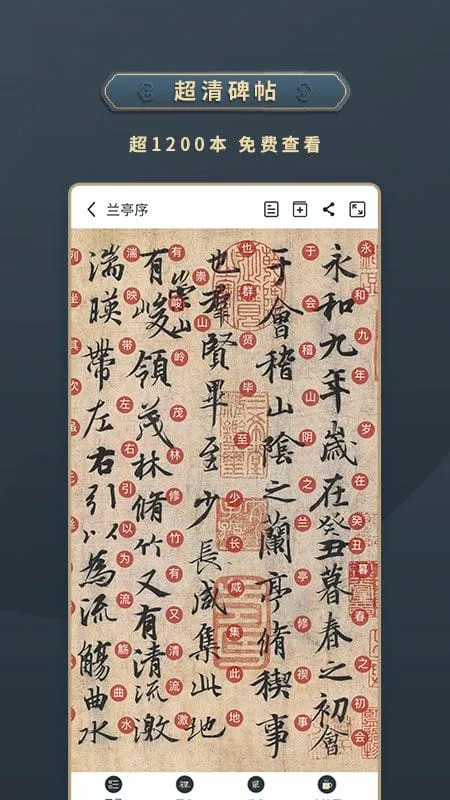 超清碑帖
超1200本 免费查看
兰亭序
永和九年歲在癸丑暮春之初會
于會稽山陰之蘭亭脩稧事
也羣賢畢至少長咸集此地
有崇山峻領茂林脩竹又有清流激
湍暎帶左右引以為流觴曲水
永和九年岁在癸丑暮春之初会
于会稽山阴之兰亭修禊事
也群贤毕至少长咸集此地
有崇山峻岭茂林修竹有又清流激
湍映带左右引以为流觞曲水